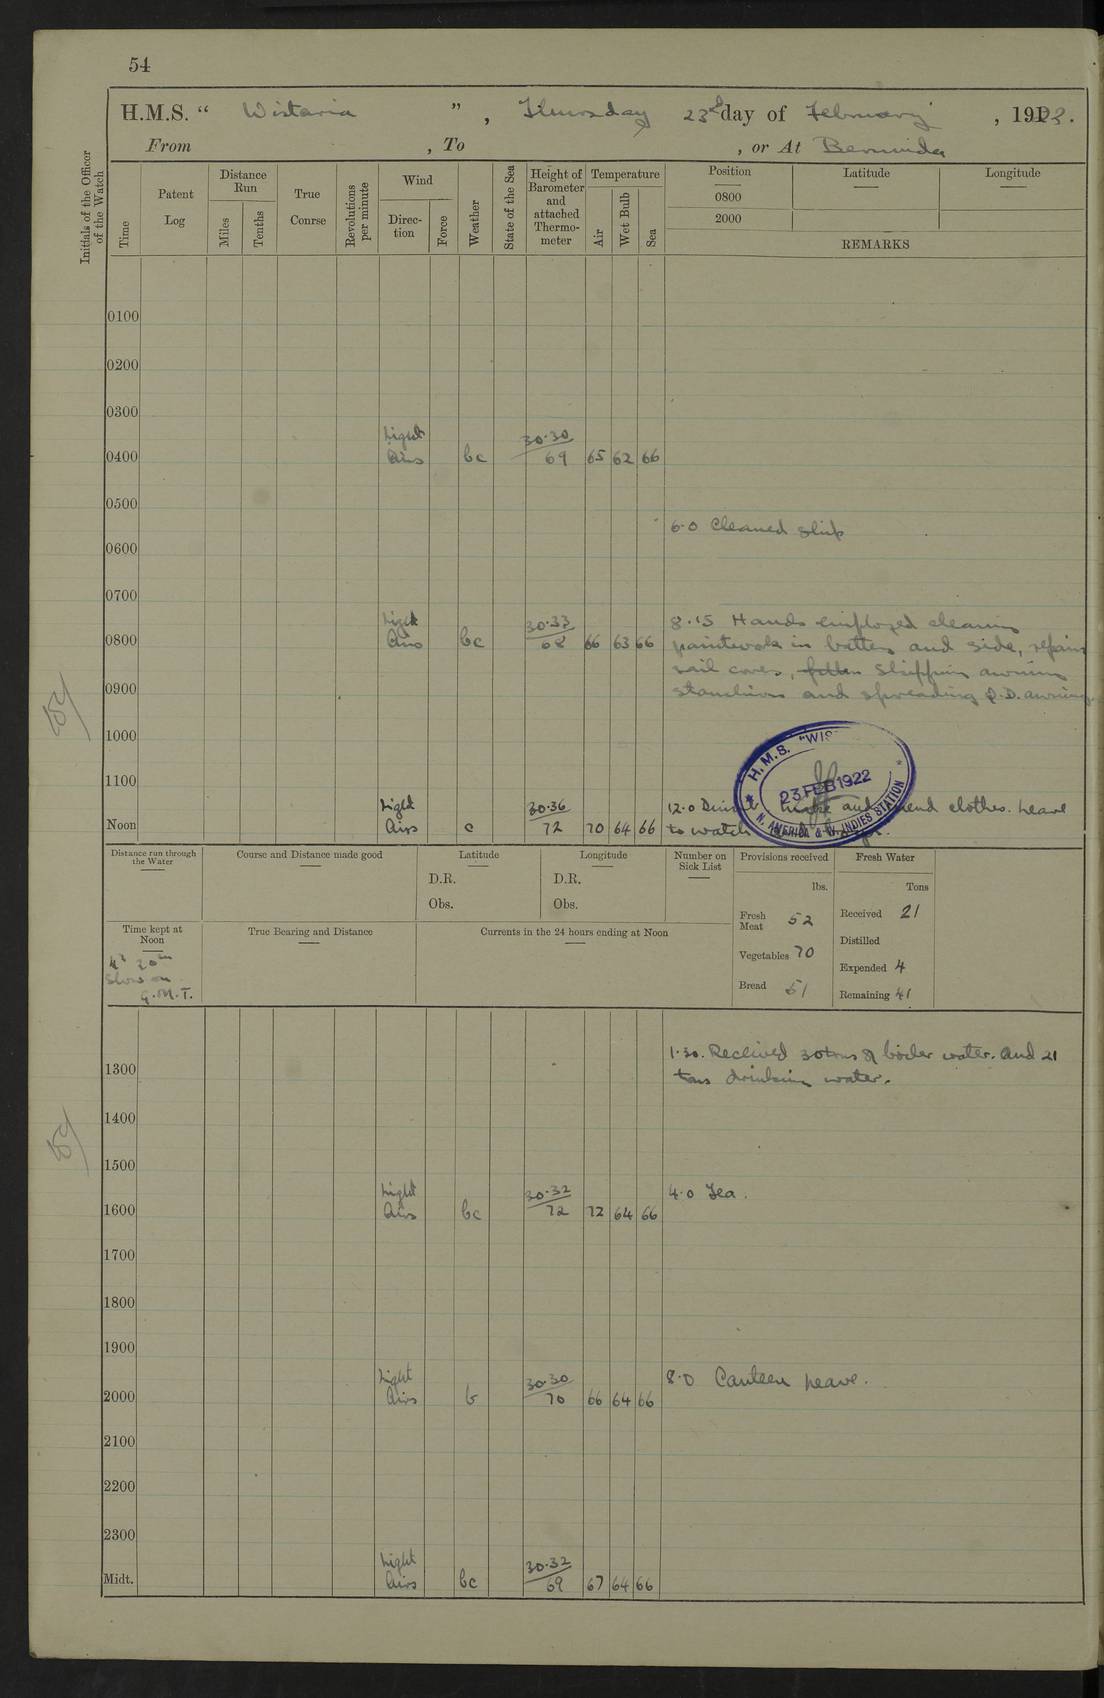 54
H.M.S. “ Wistaria ” , Thursday 23rd day of February , 1922.
From , To , or At Bermuda
Initials of the Officer of the Watch
Time
Patent Log
Distance Run
Miles
Tenths
True Course
Revolutions per minute
Wind
Direction
Force
Weather
State of the Sea
Height of Barometer and attached Thermometer
Temperature
Air
Wet Bulb
Sea
Position
Latitude
Longitude
0800
2000
REMARKS
0100
0200
0300
Light 30·30
0400 Airs bc 69 65 62 66
0500
6·0 Cleaned ship
0600
0700
Light 30·33 8·15 Hands employed cleaning
0800 Airs bc 68 66 63 66 paintwork in battery and side, repairing
sail covers, shipping awning
0900 stanchions and spreading Q.D. awning
1000
H.M.S. "WIS
23 FEB 1922
N. AMERICA & W. INDIES STATION
1100
Light 30·36 12·0 Dinner make and mend clothes. Leave
Noon Airs c 72 70 64 66 to watch
Distance run through the Water
Course and Distance made good
Latitude
D.R.
Obs.
Longitude
D.R.
Obs.
Number on Sick List
Provisions received
lbs.
Fresh Meat 52
Vegetables 70
Bread 51
Fresh Water
Tons
Received 21
Distilled
Expended 4
Remaining 41
Time kept at Noon
4h 20m
Slow on
G.M.T.
True Bearing and Distance
Currents in the 24 hours ending at Noon
1·30. Received 30 tons of boiler water. and 21
1300 tons drinking water.
1400
1500
Light 30·32 4·0 Tea.
1600 Airs bc 72 72 64 66
1700
1800
1900
Light 30·30 8·0 Canteen leave.
2000 Airs b 70 66 64 66
2100
2200
2300
Light 30·32
Midt. Airs bc 69 67 64 66